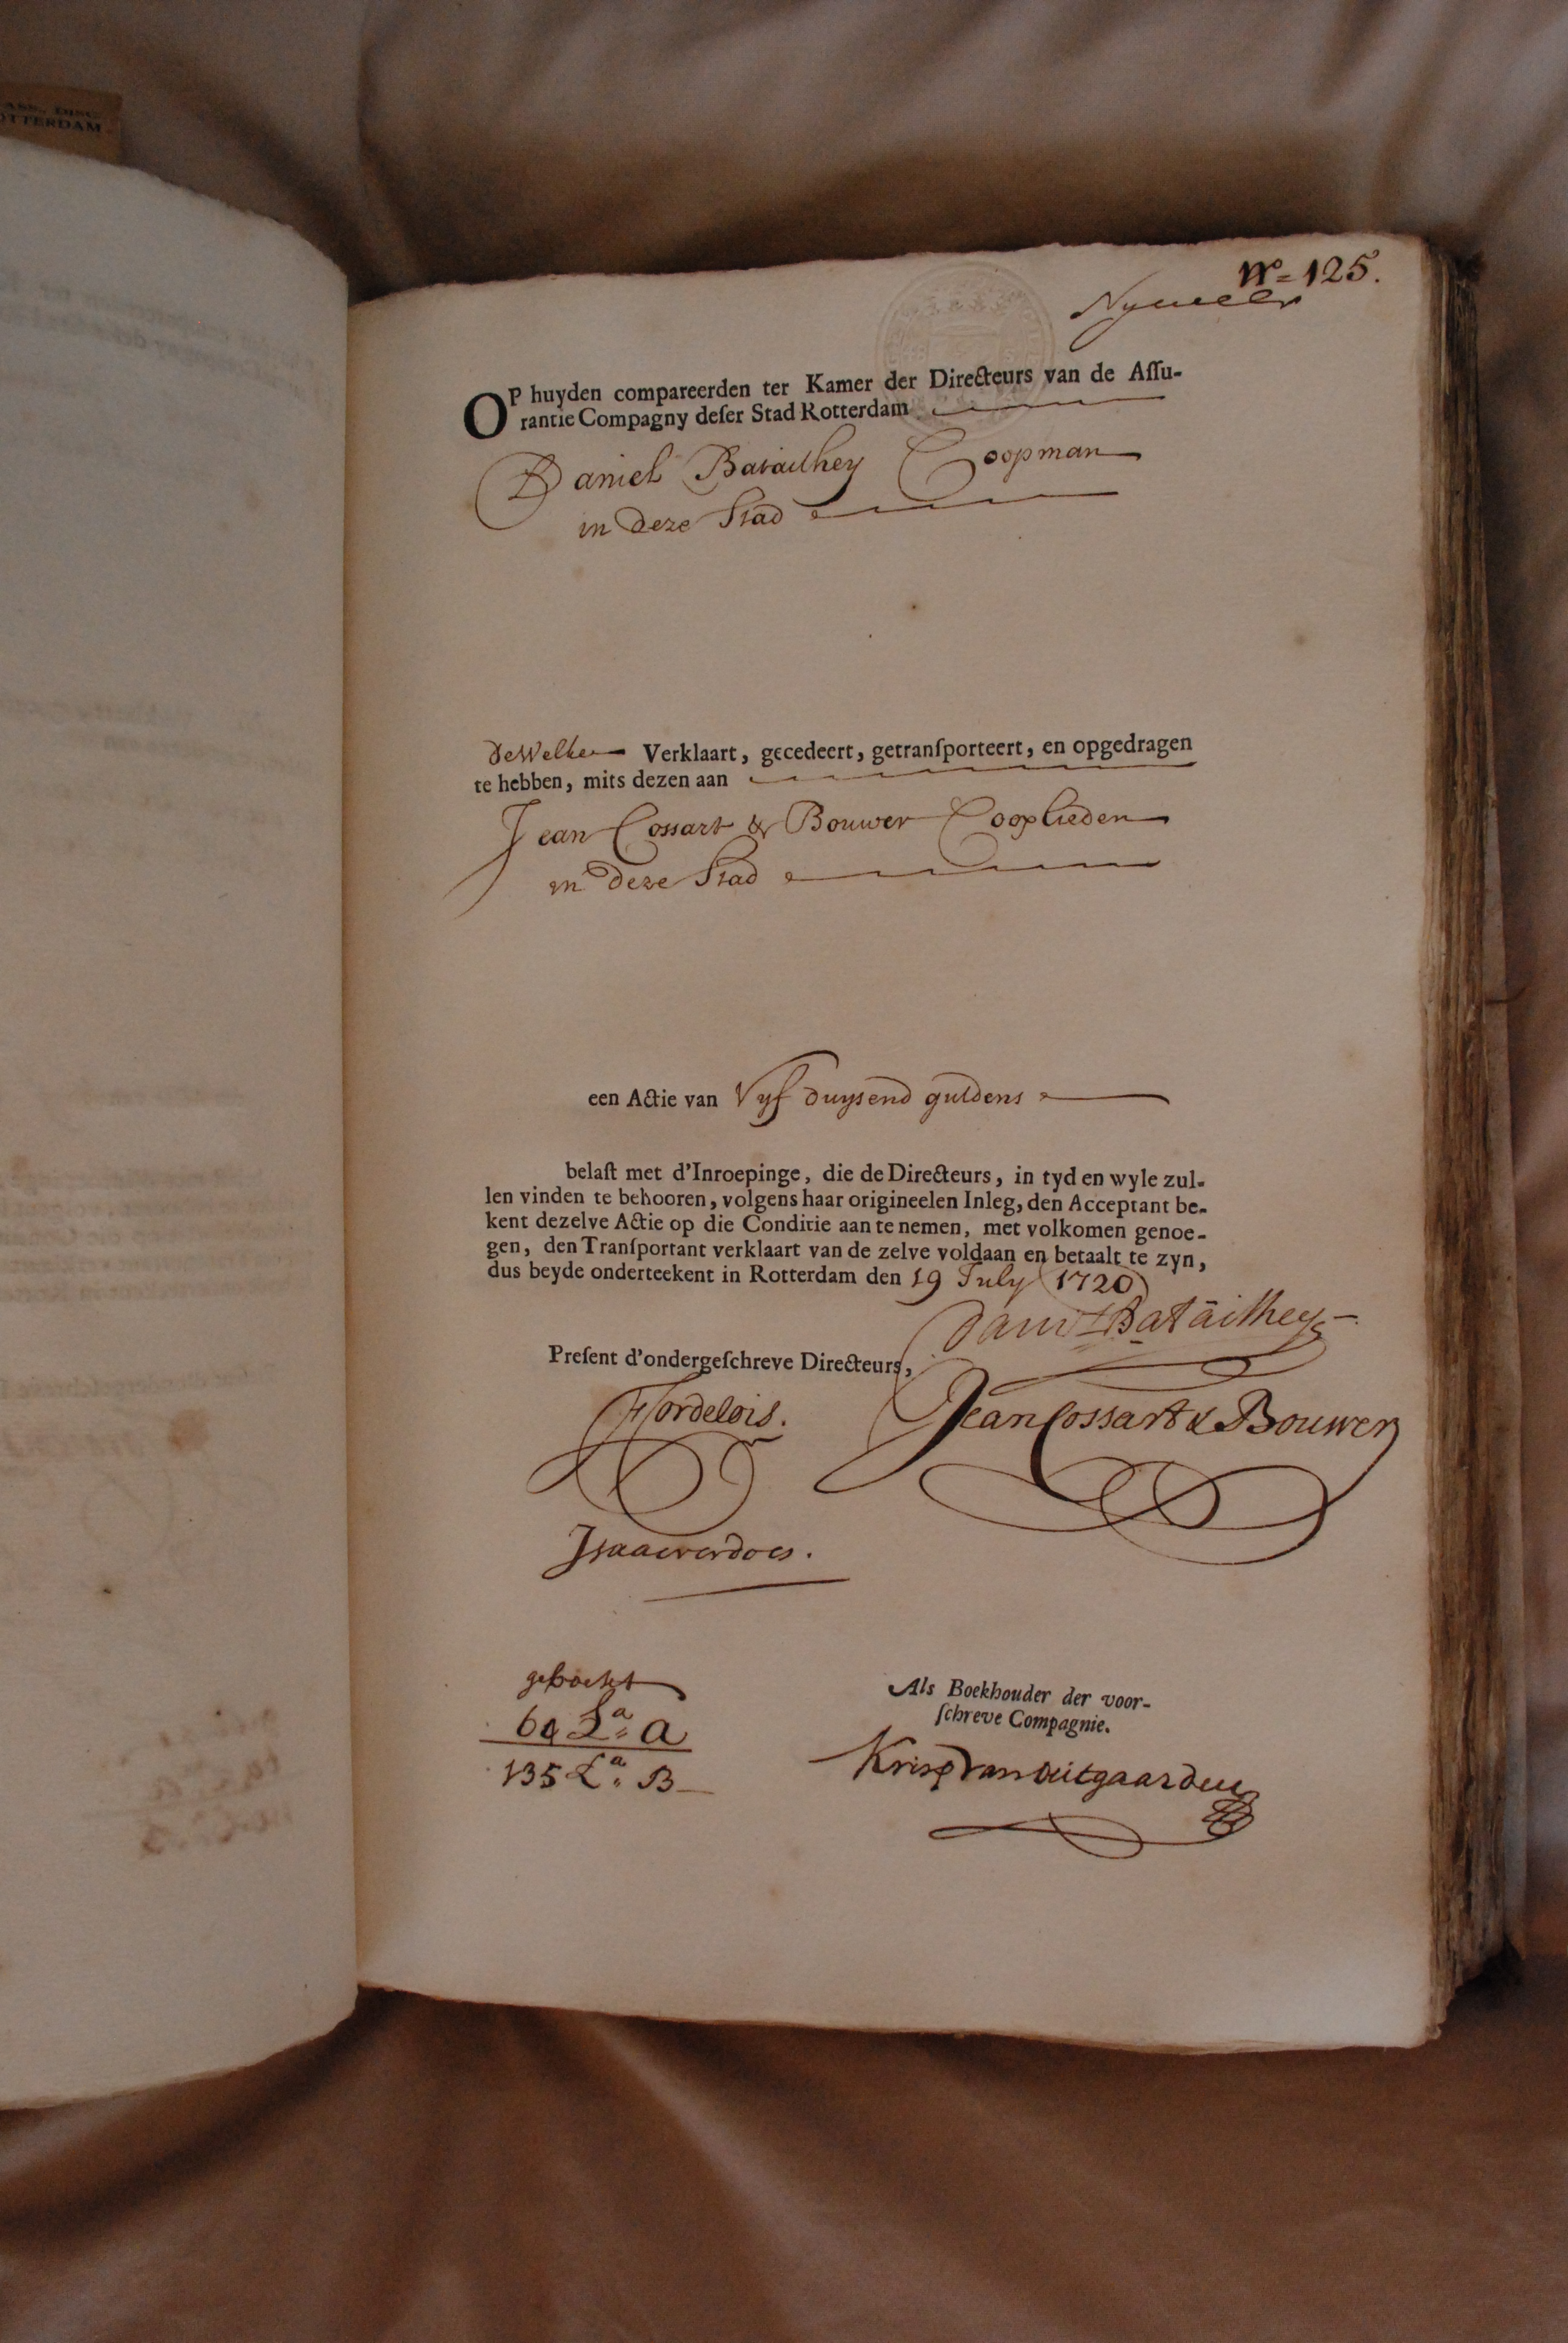 OTTERDAM
Nº=125.
OP huyden compareerden ter Kamer der Directeurs van de Assu-
rantie Compagny deser Stad Rotterdam
Daniel Batailhey Coopman
in deze Stad
deWelke Verklaart, gecedeert, getransporteert, en opgedragen
te hebben, mits dezen aan
Jean Cossart & Bouwer Cooplieden
in deze Stad
een Actie van Vyf duysend guldens
belast met d'Inroepinge, die de Directeurs, in tyd en wyle zul-
len vinden te behooren, volgens haar origineelen Inleg, den Acceptant be-
kent dezelve Actie op die Conditie aan te nemen, met volkomen genoe-
gen, den Transportant verklaart van de zelve voldaan en betaalt te zyn,
dus beyde onderteekent in Rotterdam den 19 July 1720
Batailhey
Present d'ondergeschreve Directeurs,
Jean Cossart & Bouwer
Isaacverdoes.
geboekt
Lª: a
135 Lª: B
Als Boekhouder der voor-
schreve Compagnie.